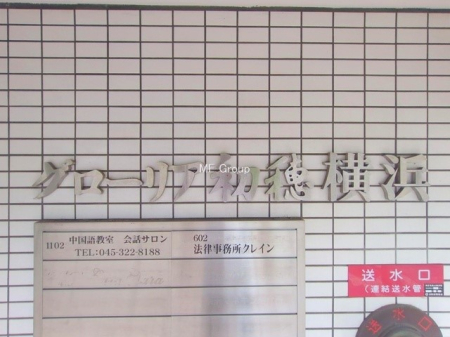 グローリア初穂横浜
ME Group
1102 中国語教室 会話サロン
TEL:045-322-8188
602
法律事務所クレイン
送水口
(連結送水管
送水口